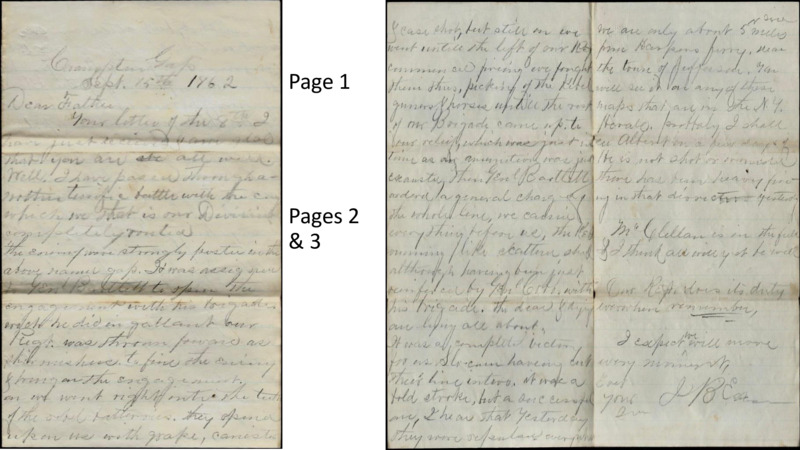 Crampton Gap
Sept. 15th 1862
Dear Father
Your letter of the 8th I
have just received
that you are all well.
Well, I have passed through a
nother terrific battle with the enemy
which we that is our Division
completely routed
the enemy was strongly posted in the
above named gap. It was assigned
to Genl Bartlett to open the
engagement with his brigade
which he did in gallant our
Regt. was thrown forward as
skirmishers to find the enemy
& bring on the engagement.
on we went right into the teeth
of the rebel batteries. they opened
upon us with grape, canister
Page 1
Pages 2
& 3
& case shot, but still on we
went untill the left of our Regt
commenced firing we fought
them thus, picking off the Rebel
gunners & horses untill the rest
of our Brigade came up to
our relief, which was just in
time as our ammunition was just
exausted, then Genl Bartlett
ordered a general charge of
the whole line, we carried
everything before us, the Reb
running like scattered sheep
although having been just
reinforced by Genl Cobb, with
his brigade. the dead & dying
are lying all about.
It was a complete victory
for us
their line entire. it was a
bold stroke, but a successful
one, I hear that yesterday
they were repulsed everywhere
we are only about 5 miles
from Harpers ferry, near
the town of Jefferson. You
will see it on any of these
maps that are in the N.Y.
Herald. probably I shall
see Albert in a few days if
he is not shot or wounded
there has been heavy firing
in that direction yesterday
McClellan is on the field
& I think all will yet be well
Our Regt does its duty
everywhere remember,
I expect we will move
every moment,
Your
J B E